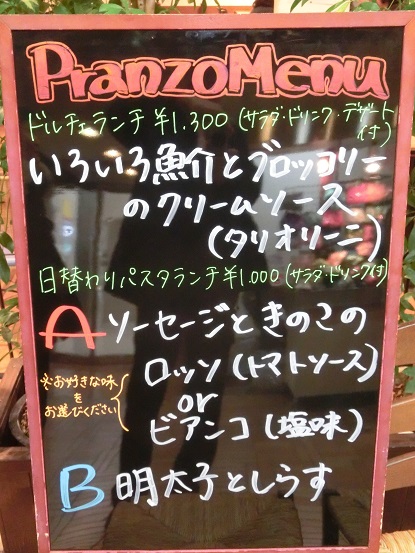 PranzoMenu
ドルチェランチ ¥1.300 (サラダ・ドリンク・デザート付)
いろいろ魚介とブロッコリー
のクリームソース
(タリオリーニ)
日替わりパスタランチ¥1.000 (サラダ・ドリンク付)
A ソーセージときのこの
ロッソ (トマトソース)
or
ビアンコ (塩味)
※お好きな味
を
お選びください
B 明太子としらす